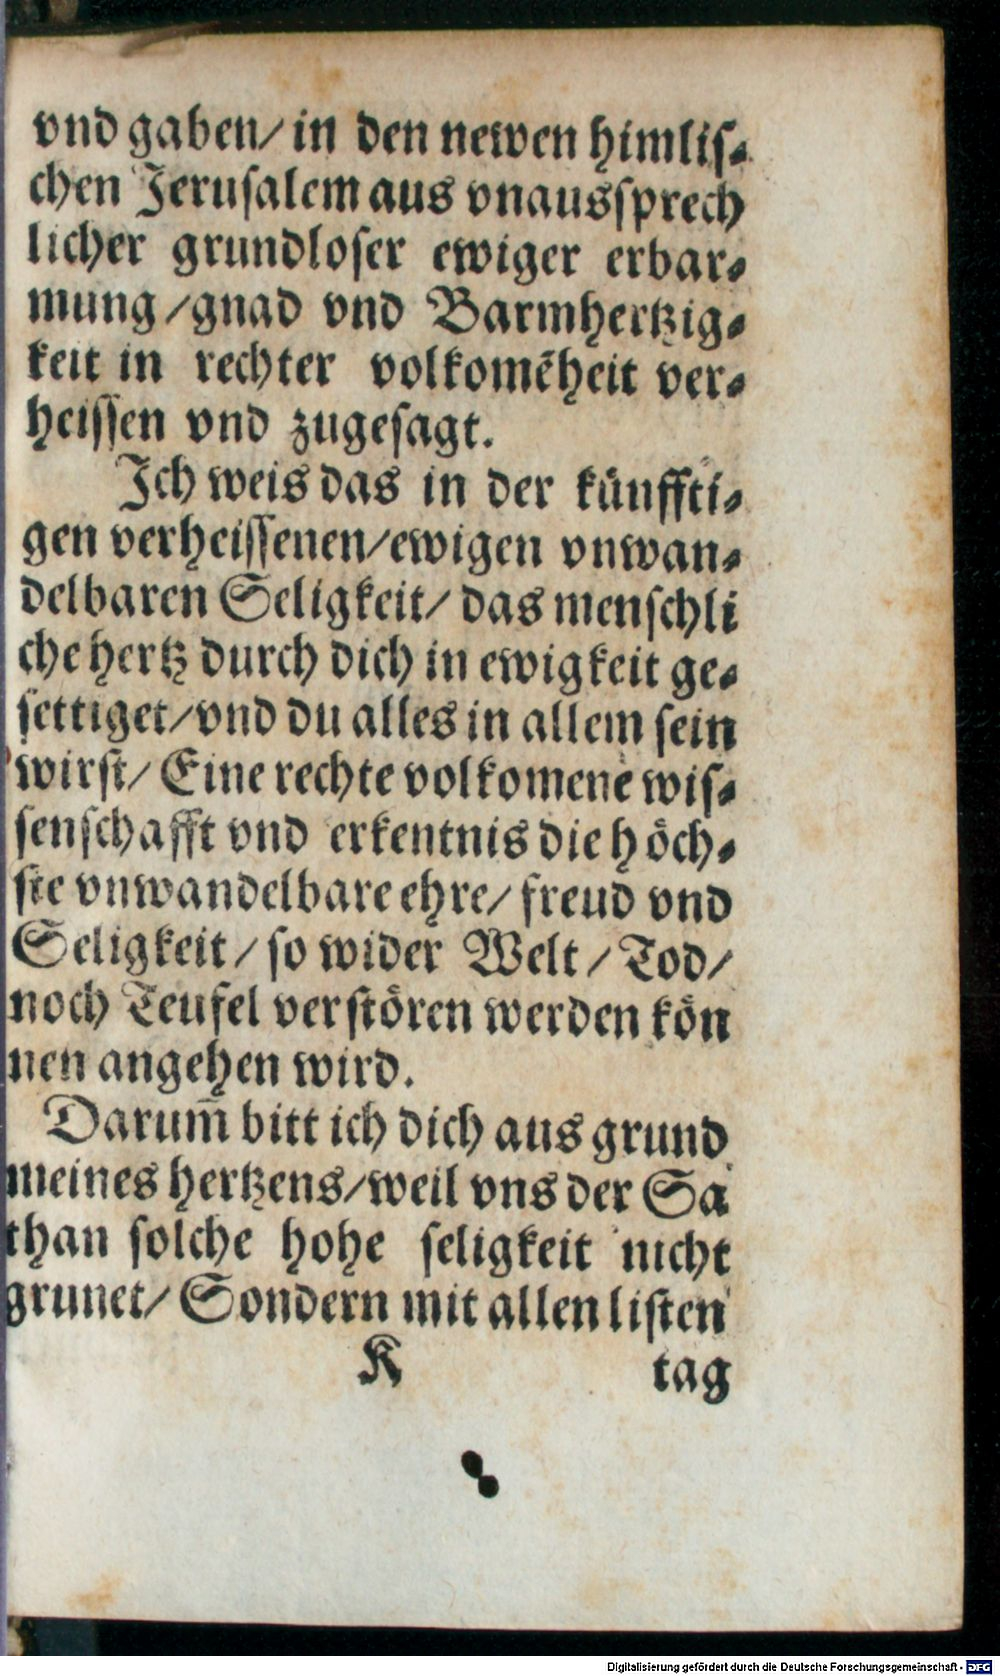 vnd gaben/ in den newen himlis⸗
chen Jerusalem aus vnaussprech
licher grundloser ewiger erbar⸗
mung /gnad vnd Barmhertzig⸗
keit in rechter volkomēheit ver⸗
heissen vnd zugesagt.
Ich weis das in der künffti⸗
gen verheissenen/ewigen vnwan⸗
delbaren Seligkeit/ das menschli
che hertz durch dich in ewigkeit ge⸗
settiget/vnd du alles in allem sein
wirst/ Eine rechte volkomene wis⸗
senschafft vnd erkentnis die höch⸗
ste vnwandelbare ehre/ freud vnd
Seligkeit/ so wider Welt / Tod/
noch Teufel verstören werden kön
nen angehen wird.
Darum̄ bitt ich dich aus grund
meines hertzens/weil vns der Sa
than solche hohe seligkeit nicht
grunet/ Sondern mit allen listen
K tag
Digitalisierung gefördert durch die Deutsche Forschungsgemeinschaft - DFG